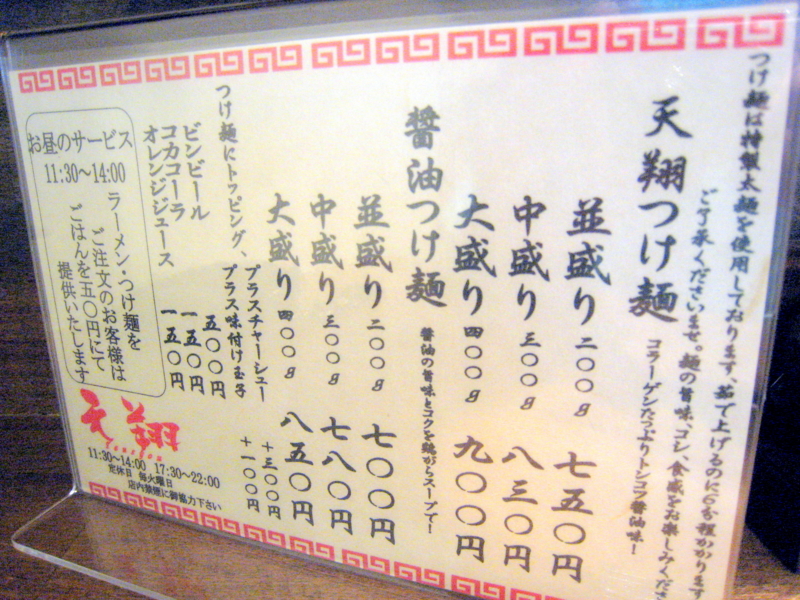 つけ麺は特製太麺を使用しております、茹で上げるのに6分程かかります
ご了承くださいませ。麺の旨味、コシ、食感をお楽しみくださ
天翔つけ麺
コラーゲンたっぷりトンコツ醤油味！
並盛り 二〇〇g 七五〇円
中盛り 三〇〇g 八三〇円
大盛り 四〇〇g 九〇〇円
醤油つけ麺
醤油の旨味とコクを鶏がらスープで！
並盛り 二〇〇g 七〇〇円
中盛り 三〇〇g 七八〇円
大盛り 四〇〇g 八五〇円
つけ麺にトッピング、プラスチャーシュー +三〇〇円
プラス味付け玉子 +一〇〇円
ビンビール 五〇〇円
コカコーラ 一五〇円
オレンジジュース 一五〇円
お昼のサービス
11:30〜14:00
ラーメン・つけ麺を
ご注文のお客様は
ごはんを五〇円にて
提供いたします
天翔
tenshou
11:30〜14:00 17:30〜22:00
定休日 毎火曜日
店内禁煙に御協力下さい